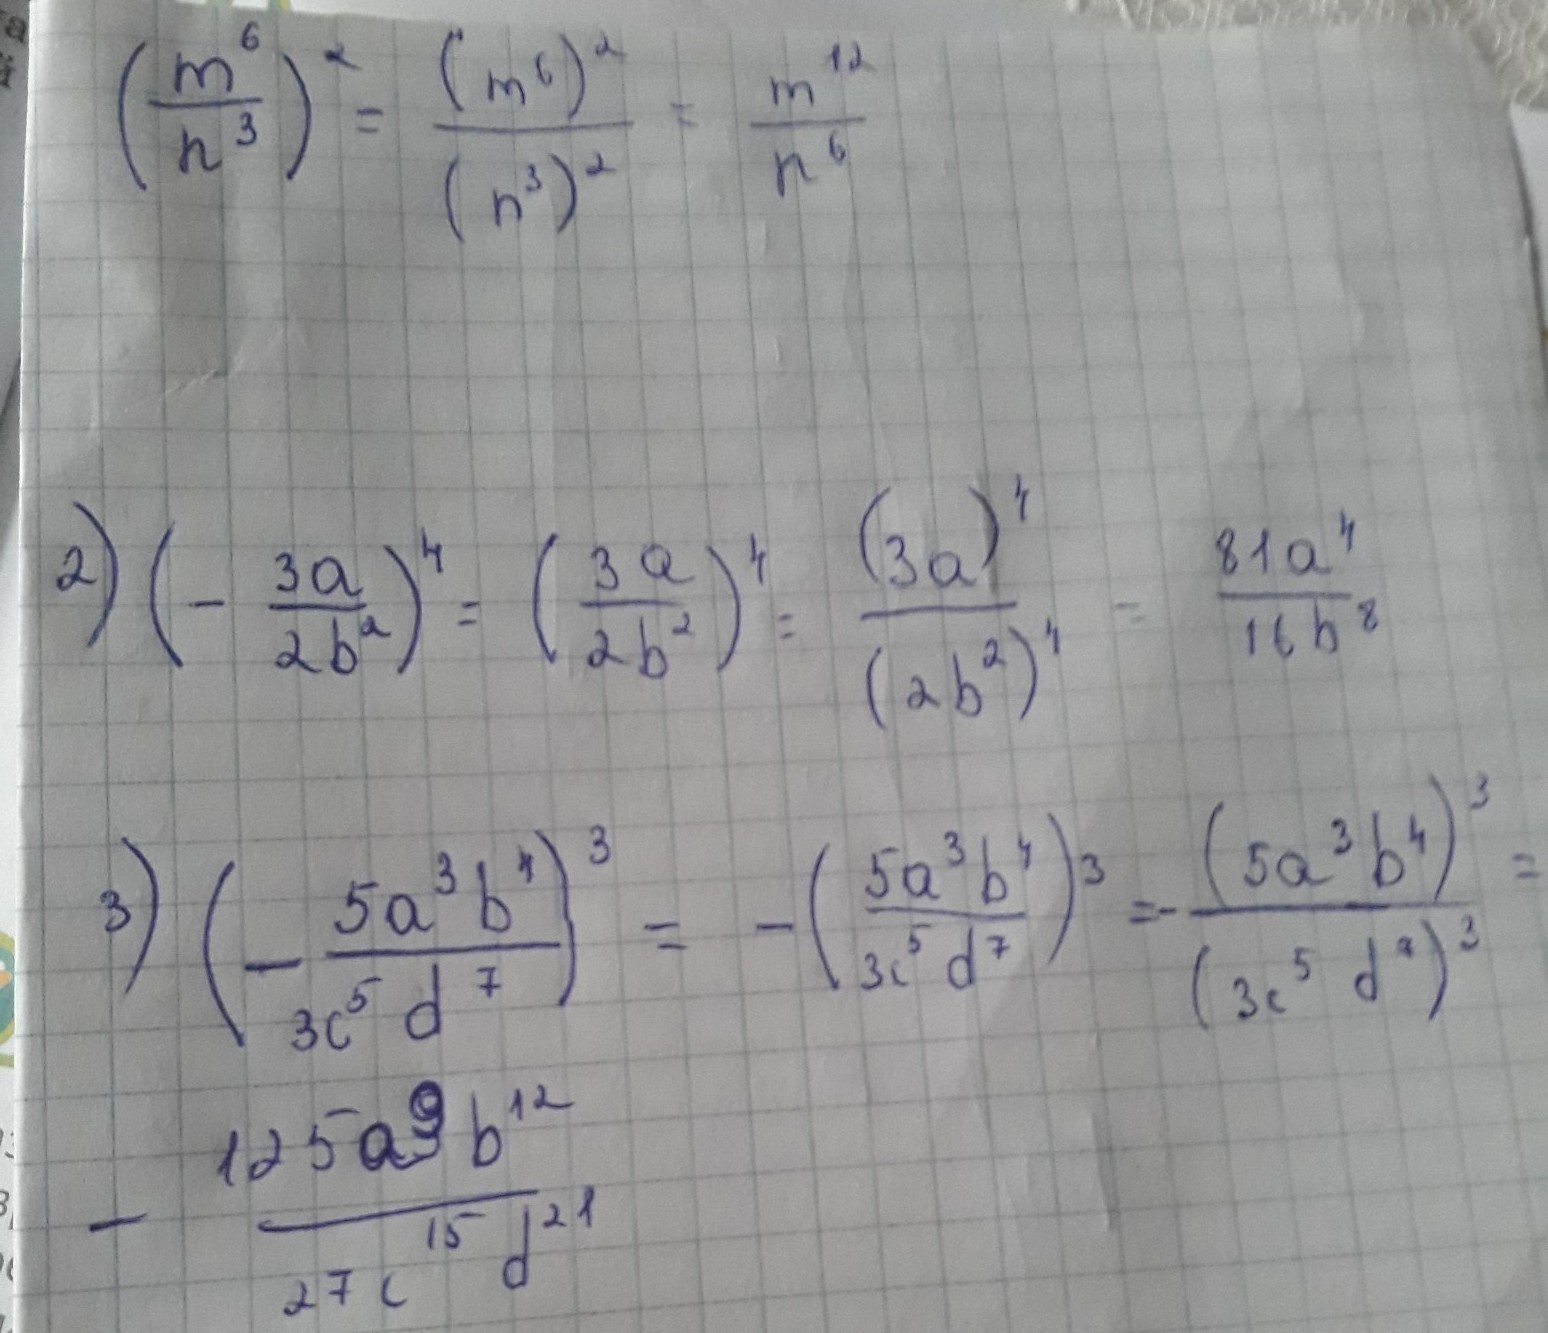 (m⁶/n³)² = (m⁶)²/(n³)² = m¹²/n⁶
2) (- 3a/2b²)⁴ = (3a/2b²)⁴ = (3a)⁴/(2b²)⁴ = 81a⁴/16b⁸
3) (- 5a³b⁴/3c⁵d⁷)³ = -(5a³b⁴/3c⁵d⁷)³ = -(5a³b⁴)³/(3c⁵d⁷)³ =
- 125a⁹b¹²/27c¹⁵d²¹